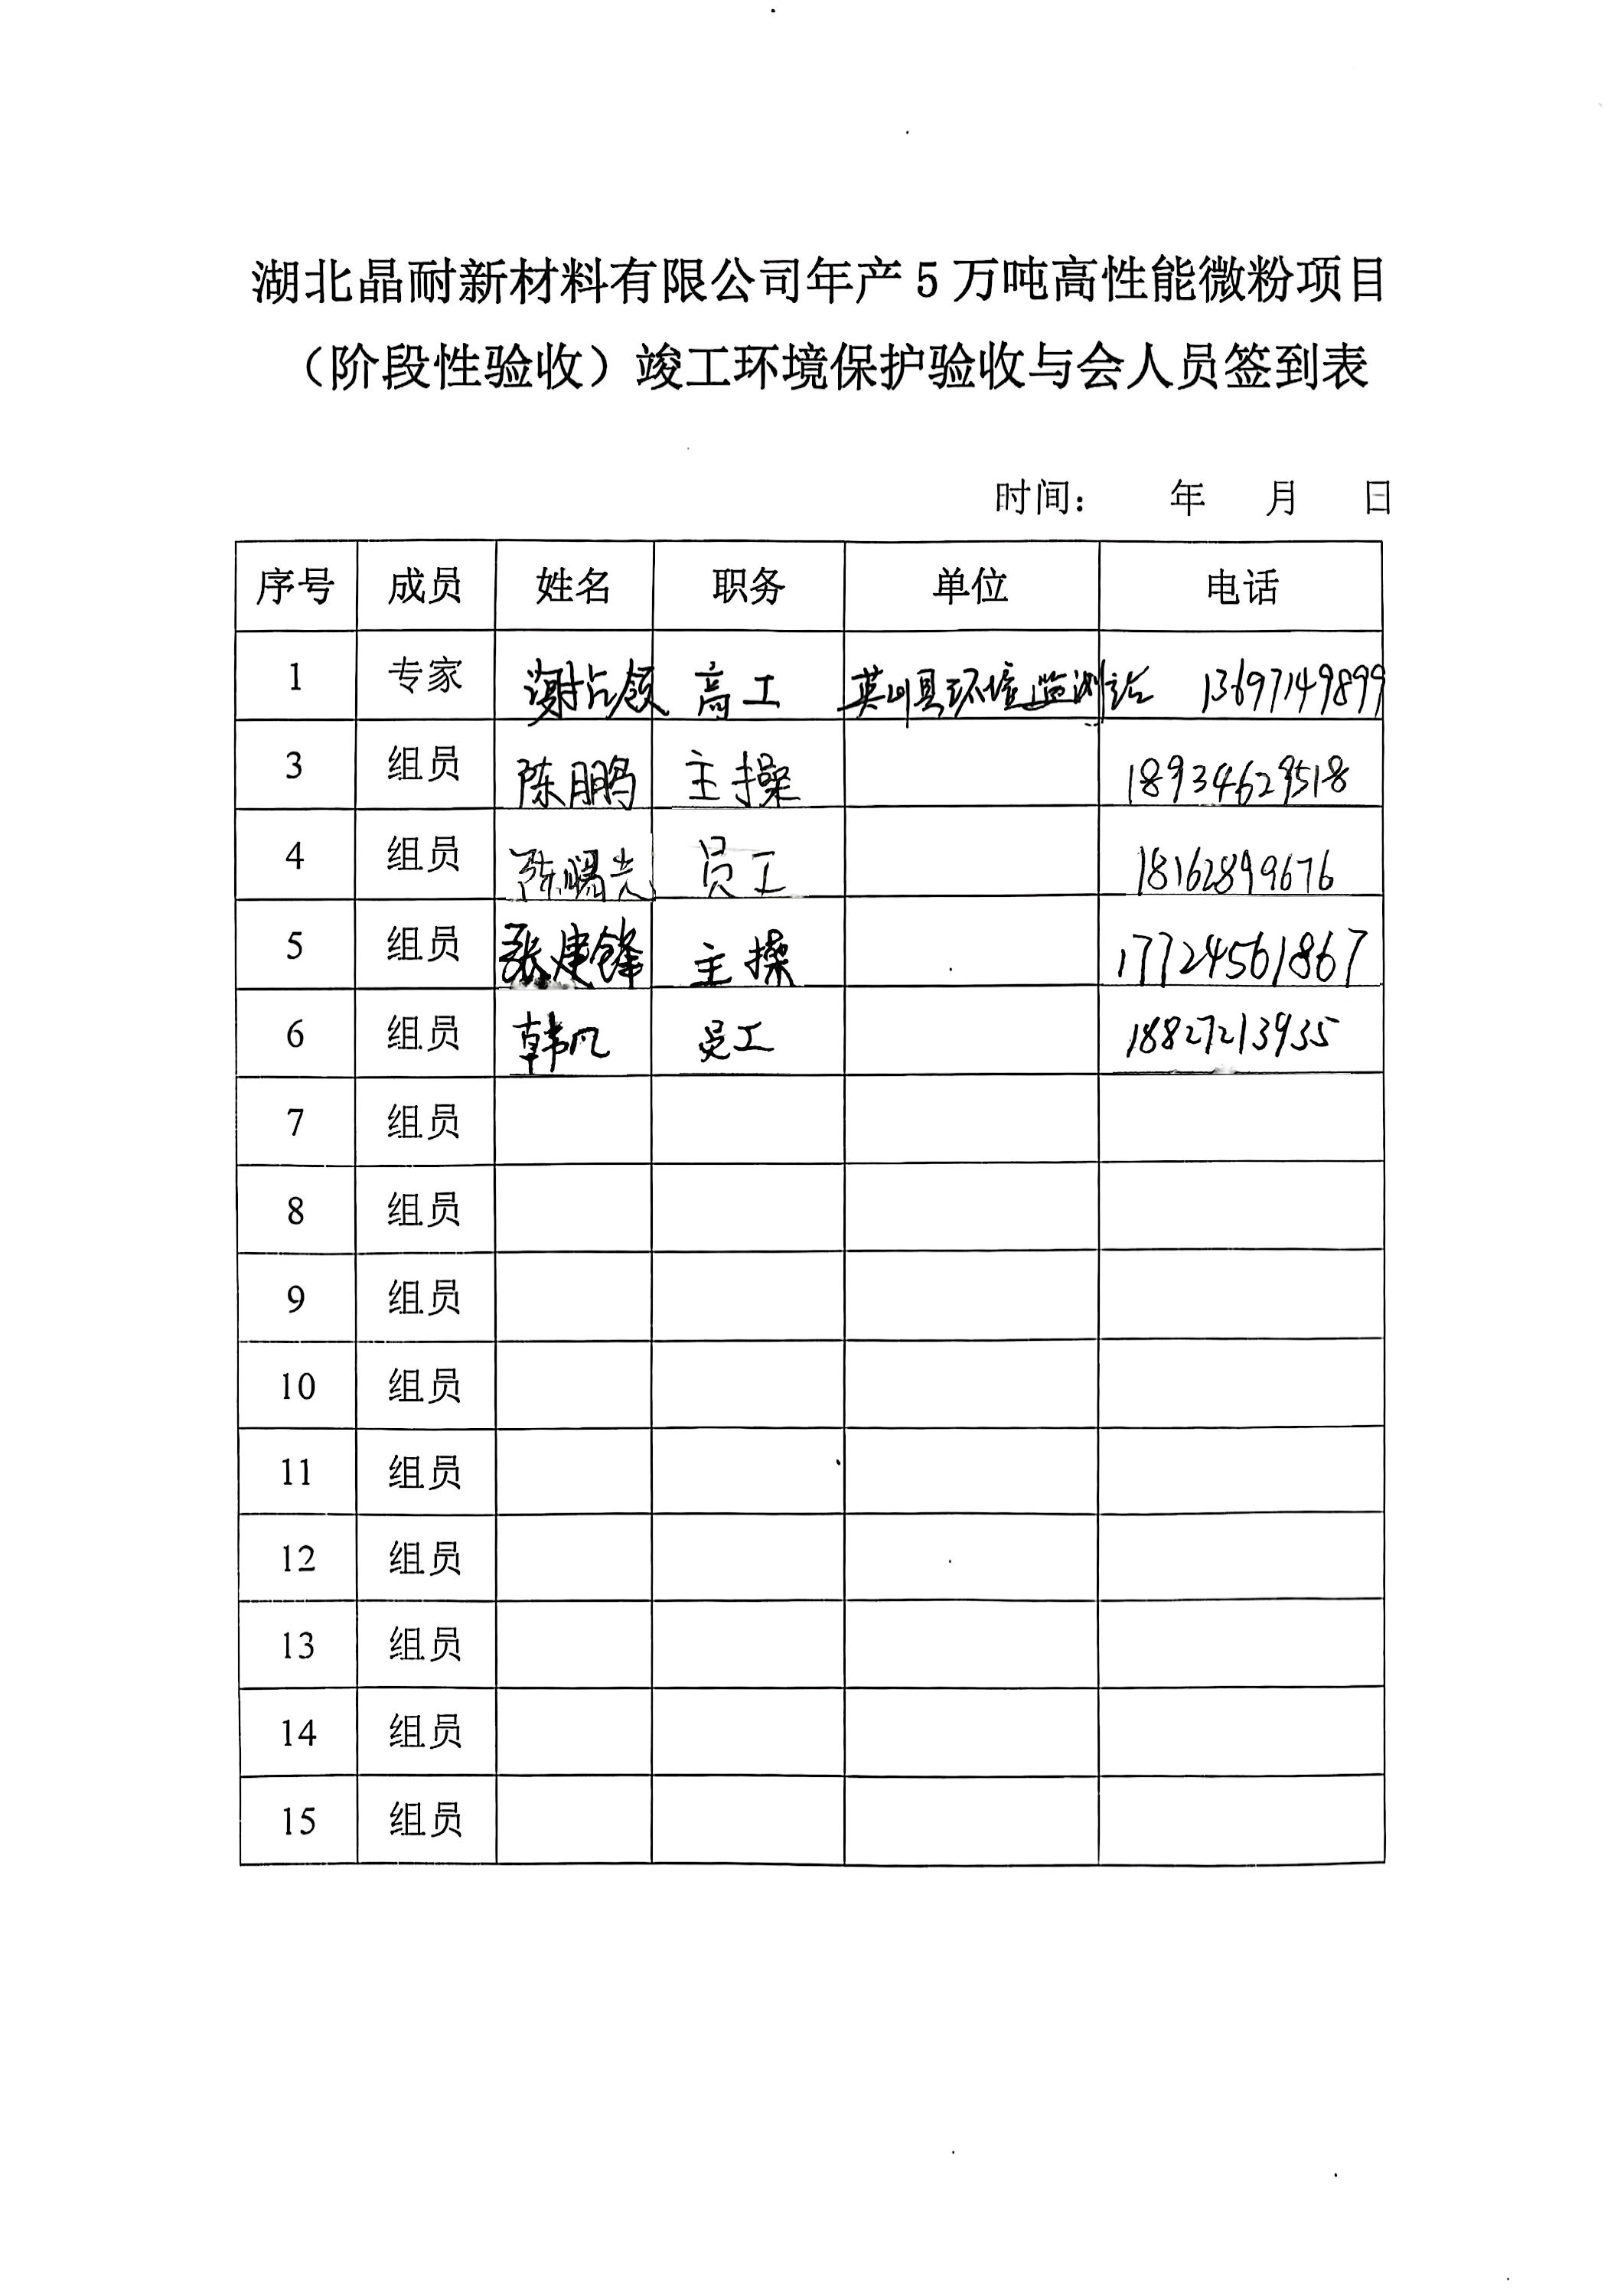 湖北晶耐新材料有限公司年产5万吨高性能微粉项目
（阶段性验收）竣工环境保护验收与会人员签到表
时间： 年 月 日
序号 成员 姓名 职务 单位 电话
1 专家 谢占领 高工 英山县环境监测站 13697149899
3 组员 陈鹏 主操 18934629518
4 组员 陈曙光 员工 18162899676
5 组员 张建锋 主操 17724561867
6 组员 韩凡 员工 18827213935
7 组员
8 组员
9 组员
10 组员
11 组员
12 组员
13 组员
14 组员
15 组员